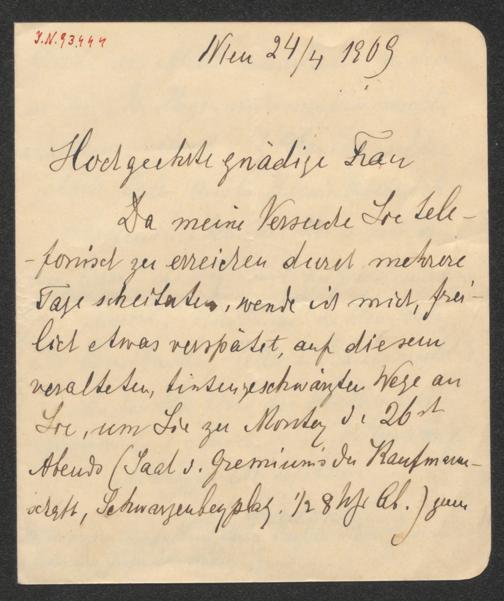 I.N. 93.444
Wien 24/4 1909
Hochgeehrte gnädige Frau
Da meine Versuche Sie tele-
-fonisch zu erreichen durch mehrere
Tage scheiterten, wende ich mich, frei-
lich etwas verspätet, auf diesem
veralteten, tintengeschwärzten Wege an
Sie, um Sie zu Montag d. 26st
Abends (Saal d. Gremiums der Kaufmann-
schaft, Schwarzenbergplatz. 1/2 8 Uhr Ab.) zum